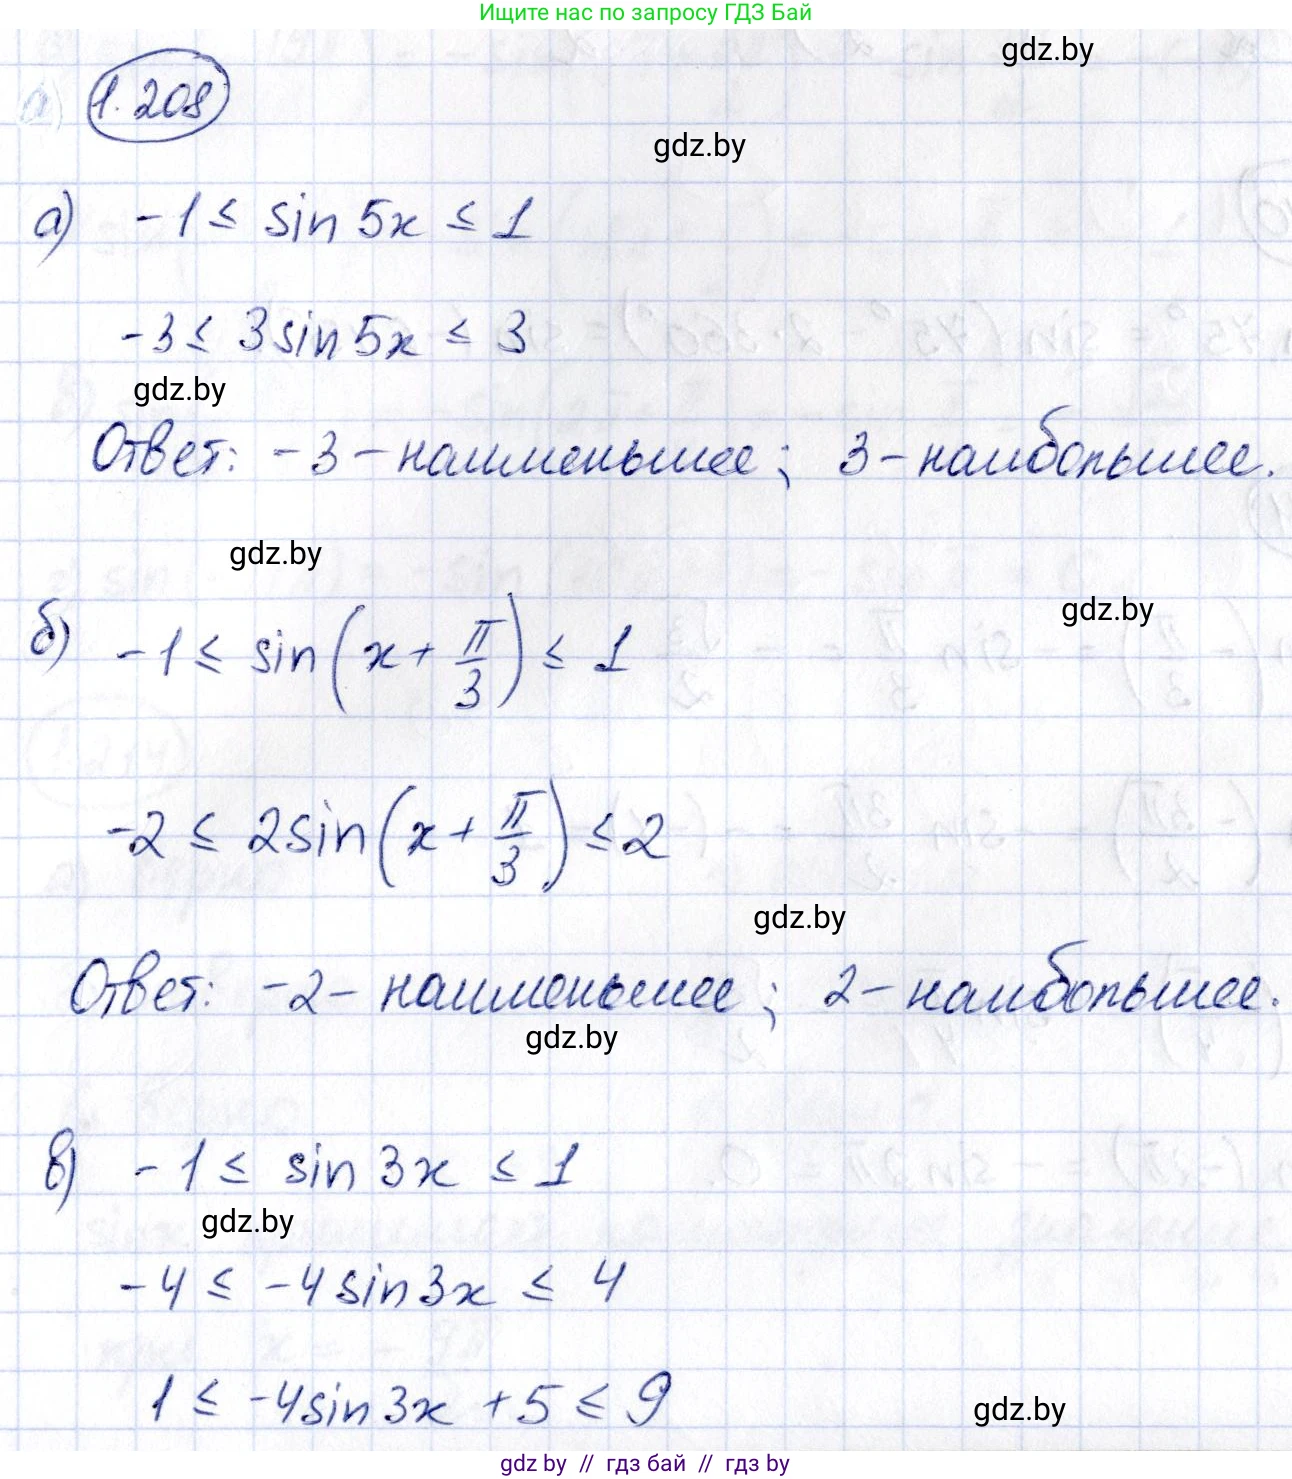 Ищите нас по запросу ГДЗ Бай
gdz.by
1.208
gdz.by
а) -1 ≤ sin 5x ≤ 1
-3 ≤ 3sin 5x ≤ 3
gdz.by
Ответ: -3 - наименьшее; 3 - наибольшее.
gdz.by
gdz.by
б) -1 ≤ sin(x + π/3) ≤ 1
-2 ≤ 2sin(x + π/3) ≤ 2
gdz.by
Ответ: -2 - наименьшее; 2 - наибольшее.
gdz.by
в) -1 ≤ sin 3x ≤ 1
gdz.by
-4 ≤ -4sin 3x ≤ 4
1 ≤ -4sin 3x + 5 ≤ 9
gdz.by
gdz by // гдз бай // гдз by